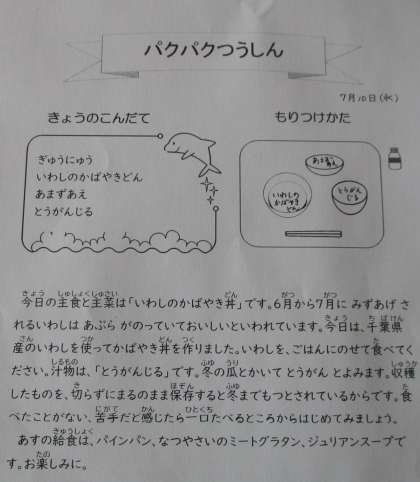 パクパクつうしん
7月10日(水)
きょうのこんだて
ぎゅうにゅう
いわしのかばやきどん
あまずあえ
とうがんじる
もりつけかた
あまずあえ
いわしの
かばやき
どん
とうがん
じる
今日の主食と主菜は「いわしのかばやき丼」です。6月から7月に みずあげ さ
れるいわしは あぶら がのっていておいしいといわれています。今日は、千葉県
産のいわしを使ってかばやき丼を作りました。いわしを、ごはんにのせて食べてく
ださい。汁物は、「とうがんじる」です。冬の瓜とかいて とうがん とよみます。収穫
したものを、切らずにまるのまま保存すると冬までもつとされているからです。食
べたことがない、苦手だと感じたら一口たべるところからはじめてみましょう。
あすの給食は、パインパン、なつやさいのミートグラタン、ジュリアンスープで
す。お楽しみに。